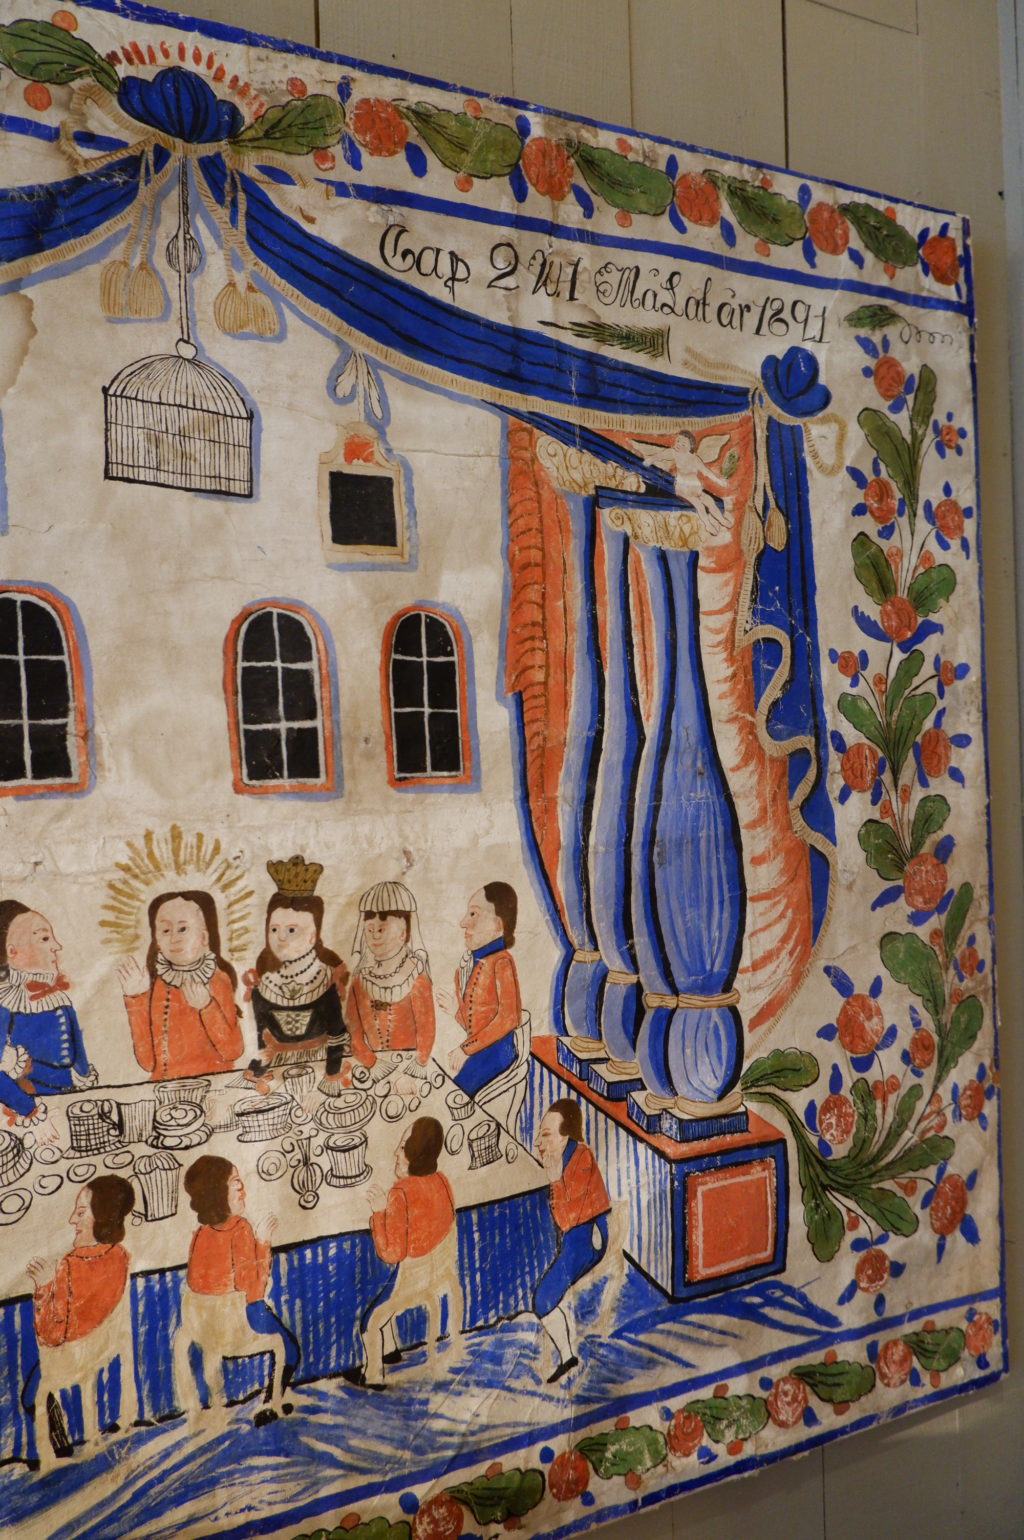 Cap 2 W1 MåLat år 1821